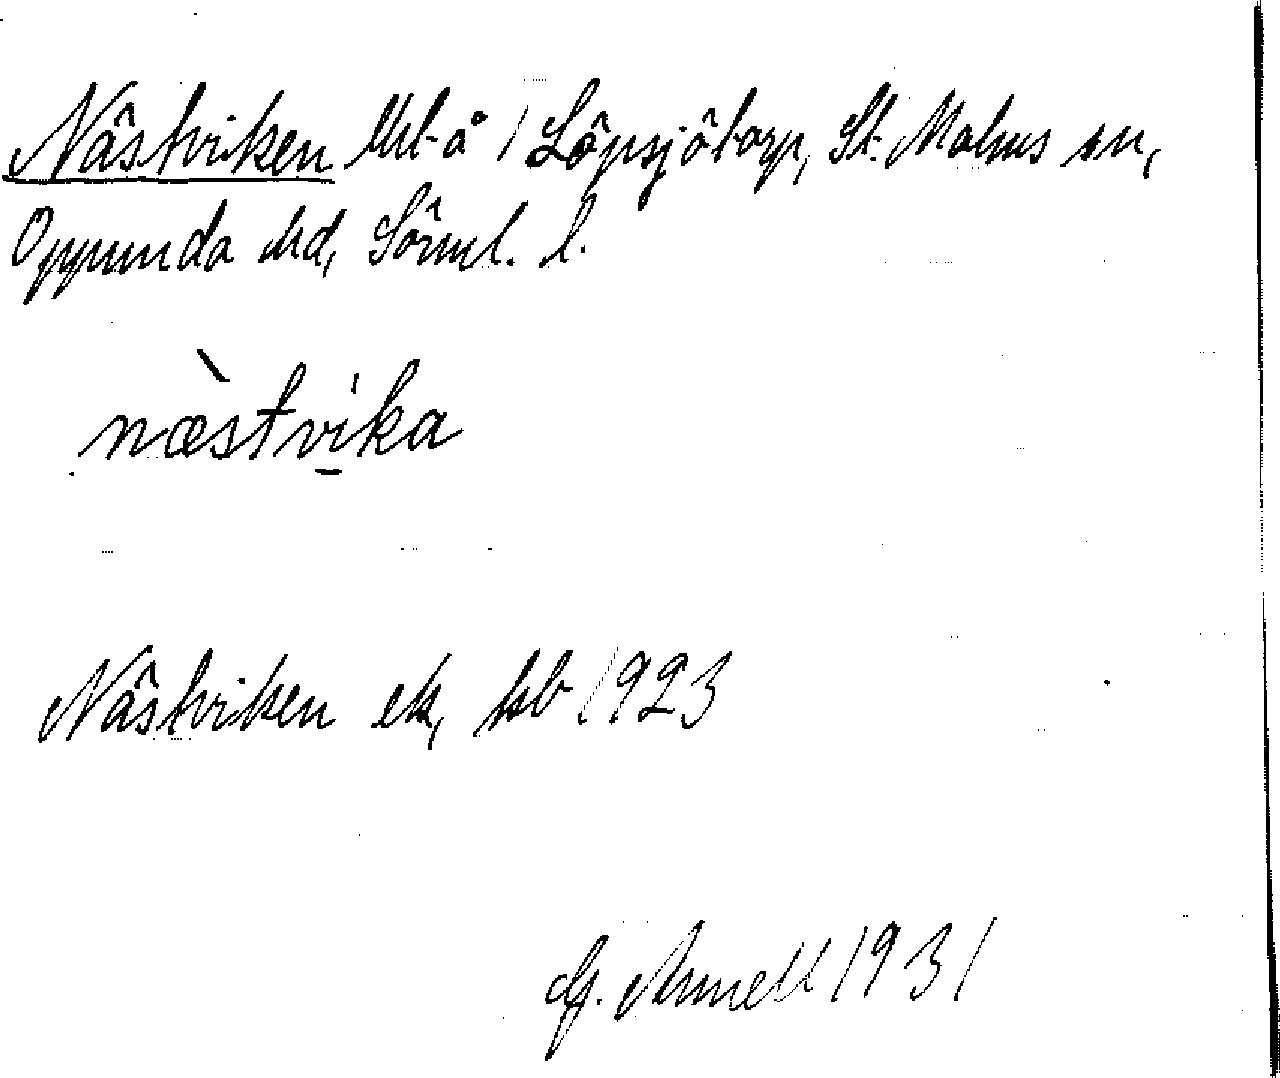 Nästviken Utl å 1 Löpsjötorp, St. Malms sn,
Oppunda hd, Sörml. l.
næ̀stvi̠ka
Nästviken ek, kb 1923
1931